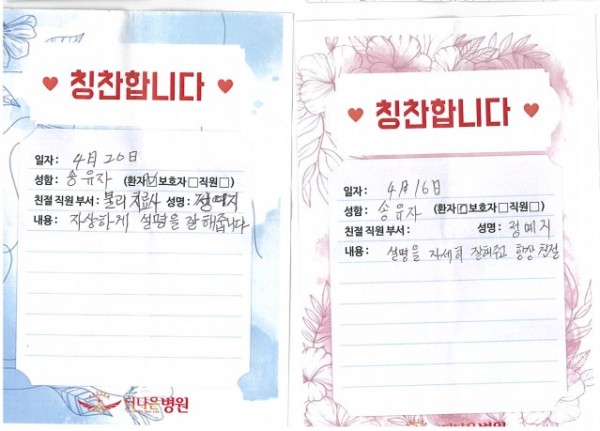 칭찬합니다
일자: 4月 20日
성함: 송유자 (환자 보호자 직원)
친절 직원 부서: 물리치료사 성명: 정예지
내용: 자상하게 설명을 잘 해줍니다
더나은병원
칭찬합니다
일자: 4月 16日
성함: 송유자 (환자 보호자 직원)
친절 직원 부서: 성명: 정예지
내용: 설명을 자세히 잘해주고 항상 친절